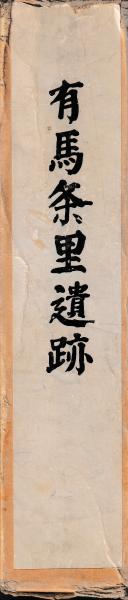 有馬条里遺跡